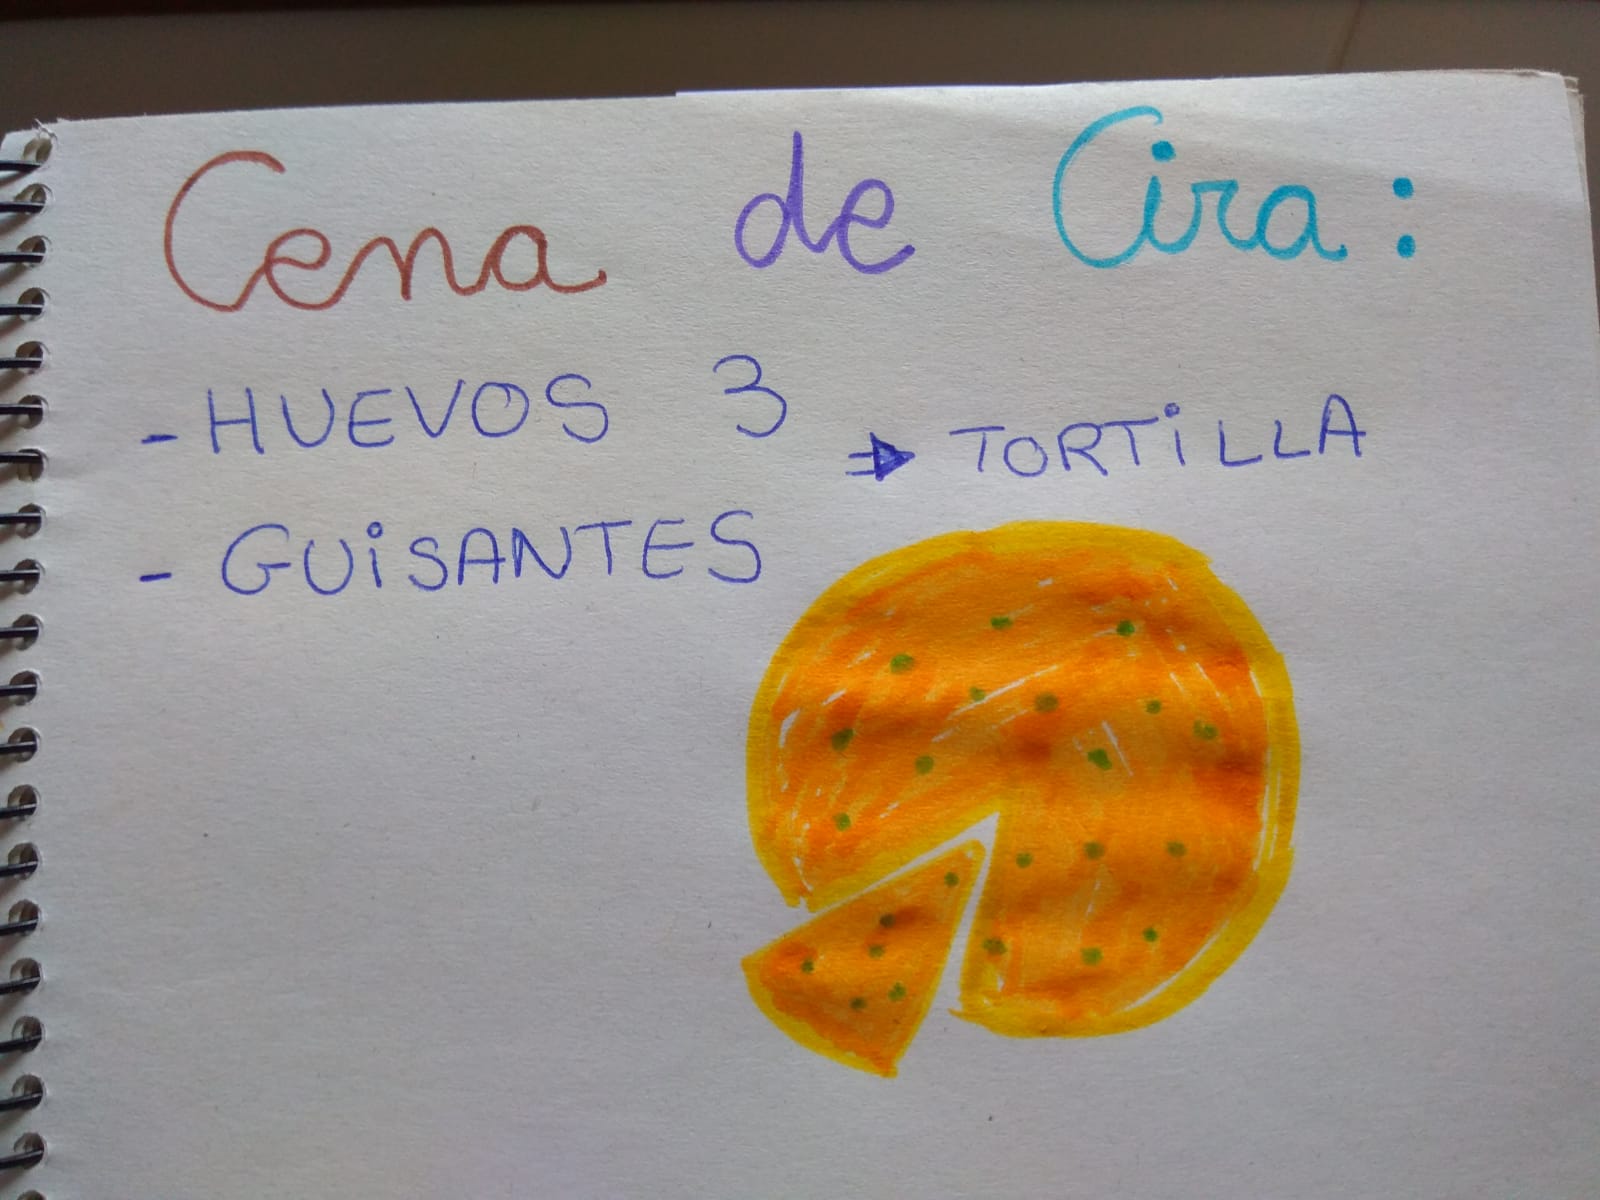 Cena de Cira:
- HUEVOS 3
⇒ TORTiLLA
- GUiSANTES